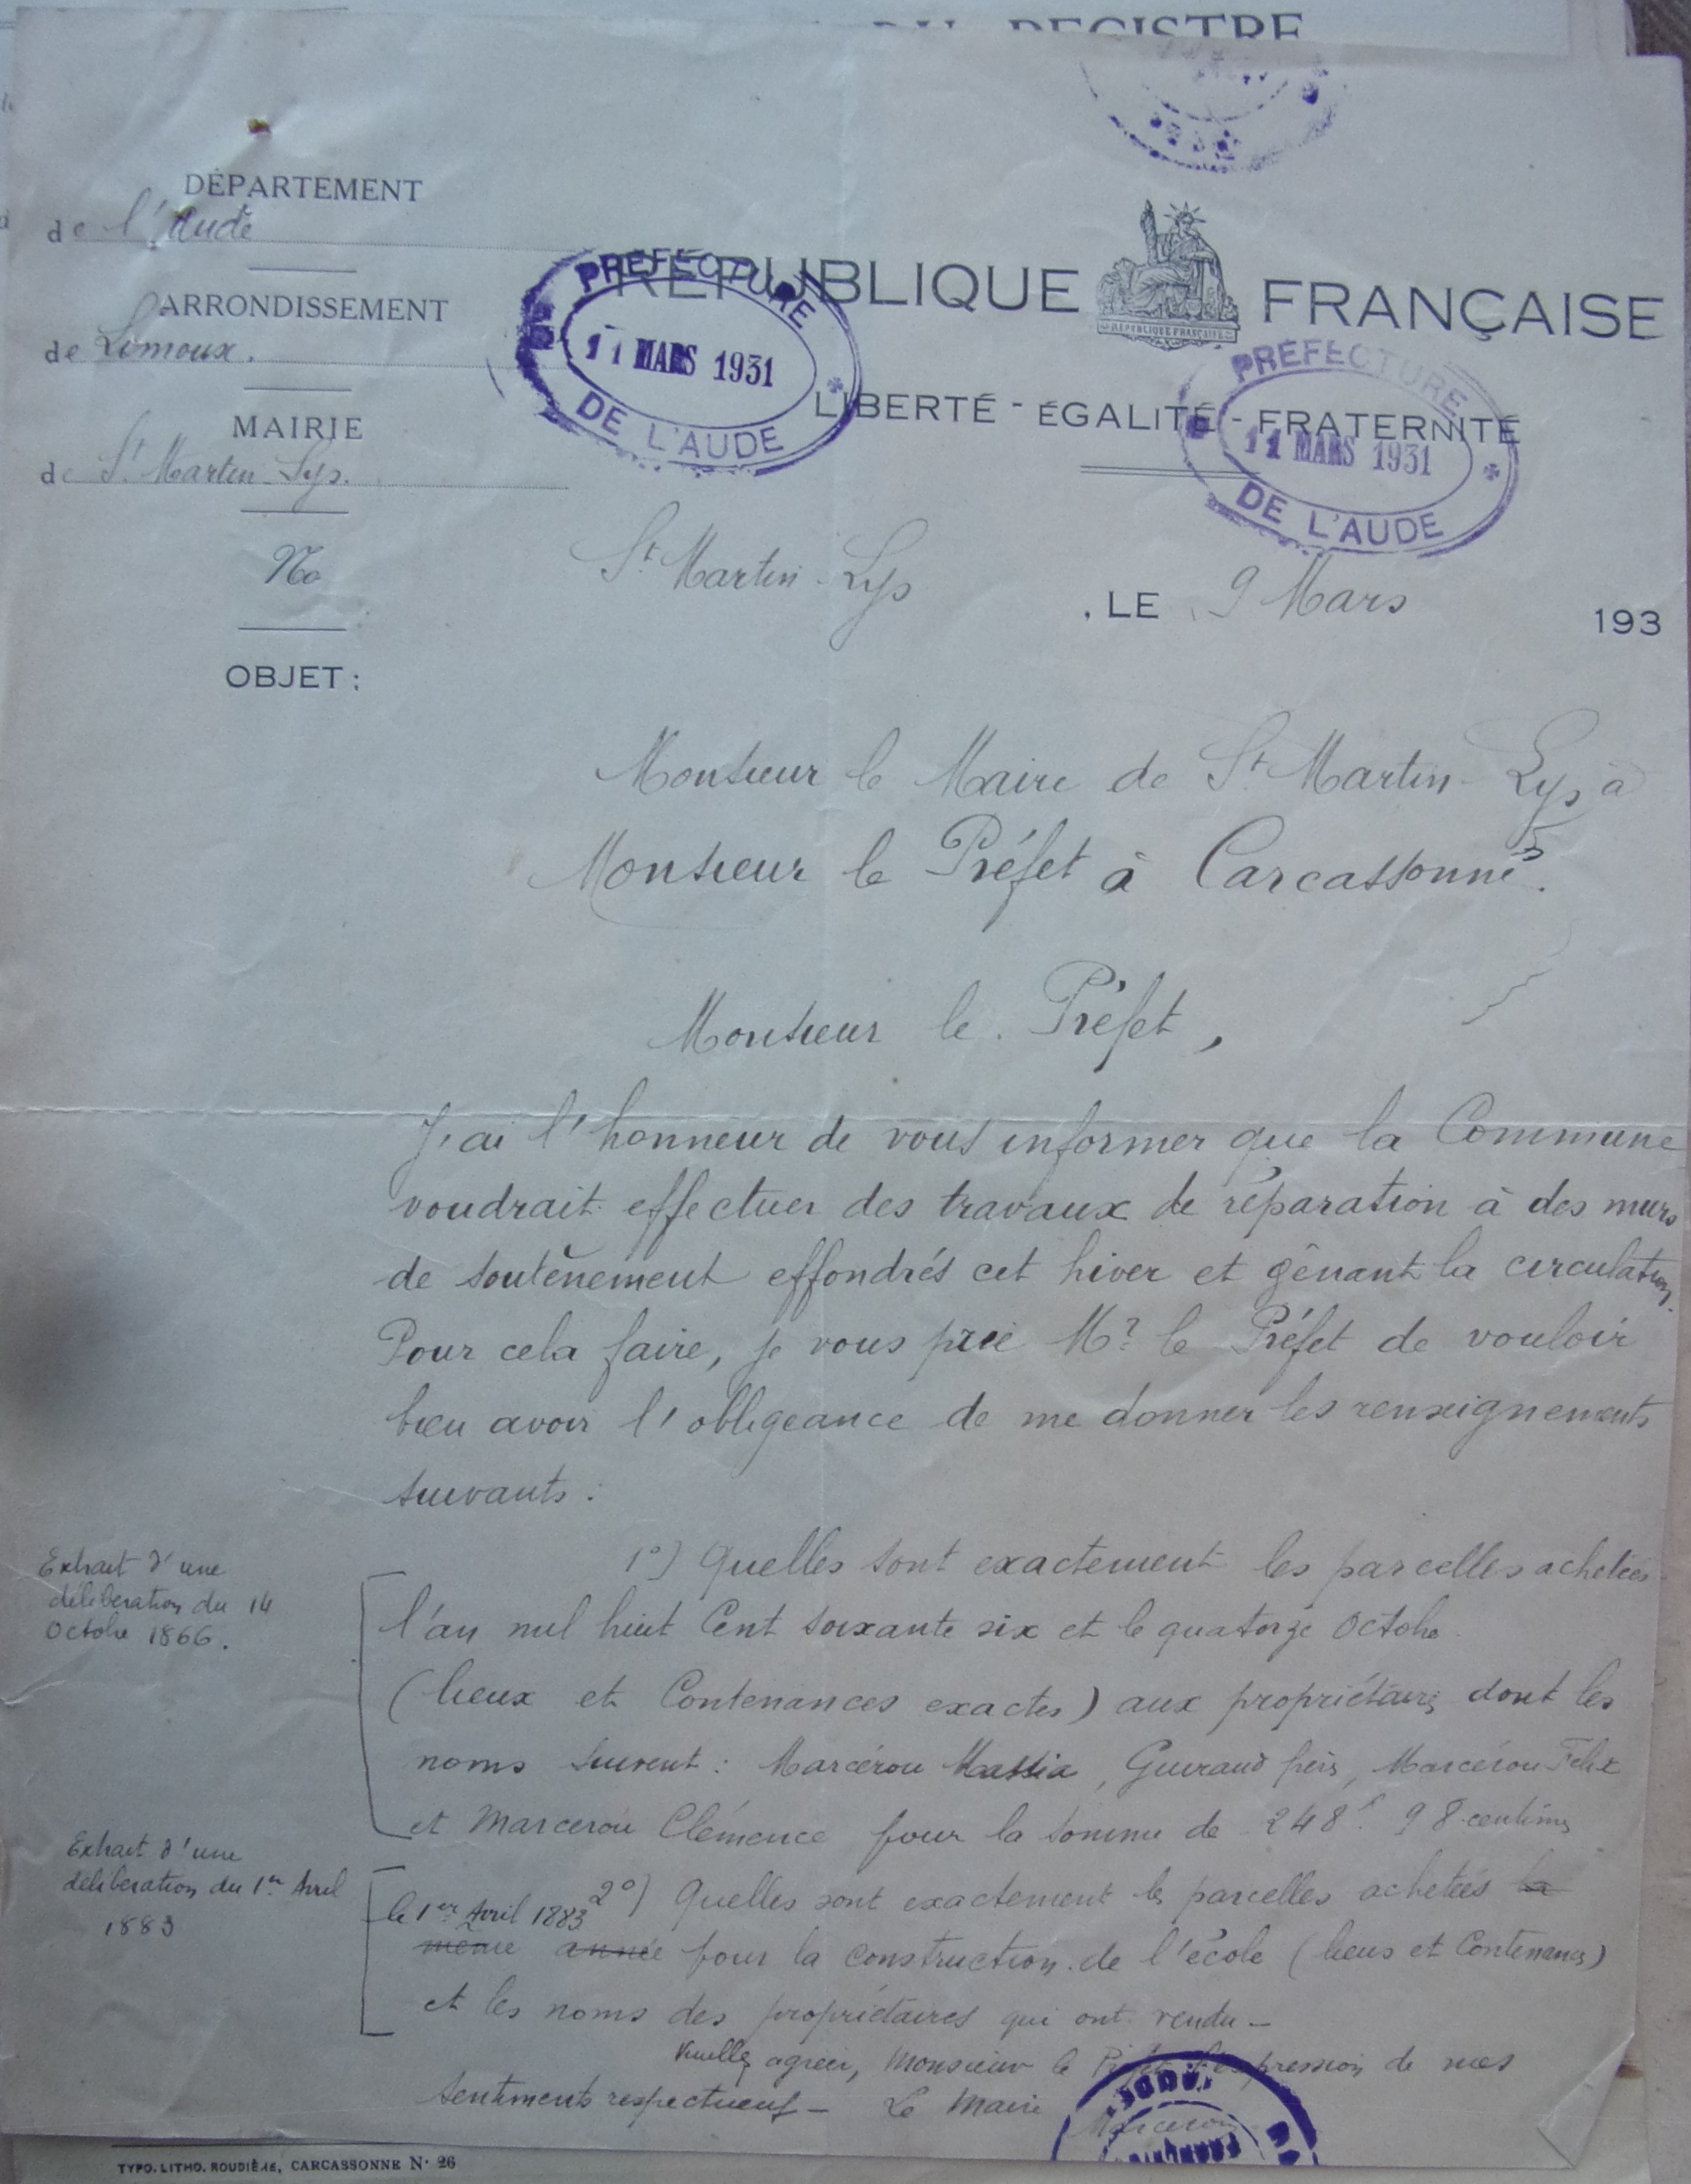 DU REGISTRE
DÉPARTEMENT
de l'Aude
ARRONDISSEMENT
de Limoux.
MAIRIE
de St Martin-Lys.
No
OBJET :
RÉPUBLIQUE FRANÇAISE
RÉPUBLIQUE FRANÇAISE
LIBERTÉ - ÉGALITÉ - FRATERNITÉ
PRÉFECTURE
11 MARS 1931
DE L'AUDE
PRÉFECTURE
11 MARS 1931
DE L'AUDE
St Martin-Lys , LE 9 Mars 193
Monsieur le Maire de St Martin-Lys à
Monsieur le Préfet à Carcassonne.
Monsieur le Préfet,
J'ai l'honneur de vous informer que la Commune
voudrait effectuer des travaux de réparation à des murs
de soutènement effondrés cet hiver et gênant la circulation.
Pour cela faire, je vous prie Mr le Préfet de vouloir
bien avoir l'obligeance de me donner les renseignements
suivants :
Extrait d'une
délibération du 14
Octobre 1866.
1°) Quelles sont exactement les parcelles achetées
l'an mil huit Cent soixante six et le quatorze Octobre
(lieux et Contenances exactes) aux propriétaires dont les
noms suivent : Marcérou Massia, Guiraud frères, Marcérou Félix
et Marcerou Clémence pour la somme de 248f. 98 centimes
Extrait d'une
délibération du 1er Avril
1883
2°) Quelles sont exactement les parcelles achetées la
le 1er Avril 1883
même année pour la construction de l'école (lieux et Contenances)
et les noms des propriétaires qui ont vendu -
Veuillez agréer, Monsieur le Préfet l'expression de mes
sentiments respectueux - Le Maire
Marcerou
TYPO. LITHO. ROUDIÈRE, CARCASSONNE N° 26